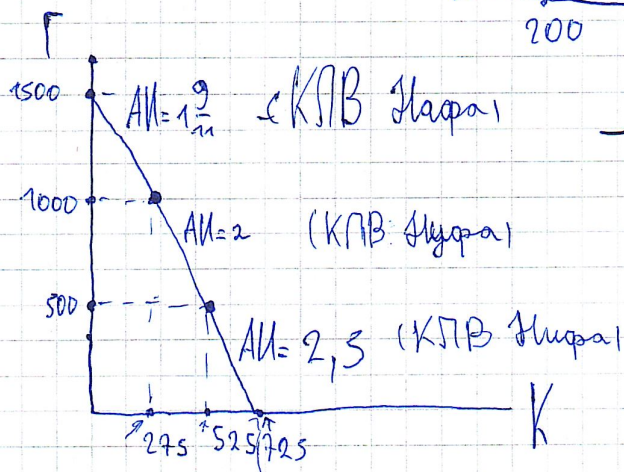 Г
200
1500
АИ = 1 9/11 (КПВ Нафа)
1000
АИ = 2 (КПВ Нуфа)
500
АИ = 2,5 (КПВ Нифа)
275 525 725
К